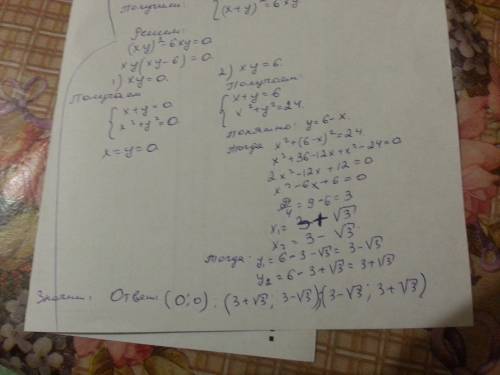 Получили: { (x+y)² = 6xy
Решим:
(xy)² = 6xy = 0
xy(xy-6) = 0.
1) xy = 0.
Получаем
{ x+y = 0
x²+y² = 0.
x = y = 0.
2) xy = 6.
Получаем
{ x+y = 6
x²+y² = 24.
Понятно: y = 6-x.
Тогда x²+(6-x)² = 24.
x²+36-12x+x²-24 = 0
2x²-12x+12 = 0
x²-6x+6 = 0
D/4 = 9-6 = 3
x₁ = 3+√3
x₂ = 3-√3.
Тогда: y₁ = 6-3-√3 = 3-√3
y₂ = 6-3+√3 = 3+√3
Значит: Ответ: (0;0); (3+√3; 3-√3); (3-√3; 3+√3)